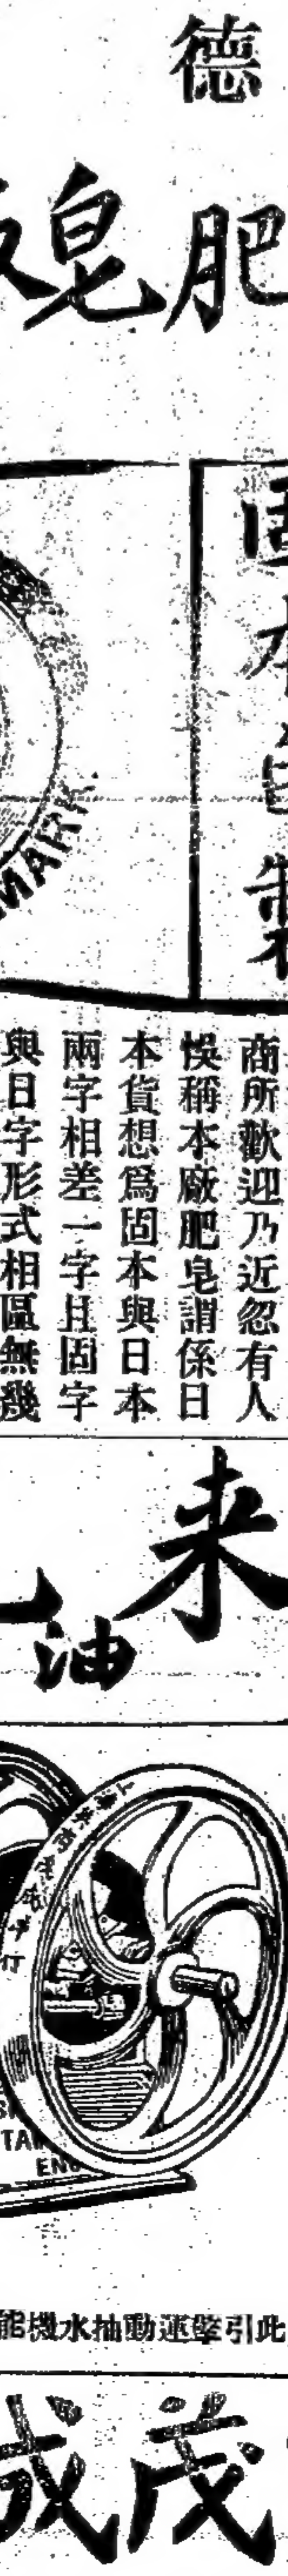 德
肥皂
固本皂製
MARK.
商所歡迎乃近忽有人
悞稱本廠肥皂謂係日
本貨想爲固本與日本
兩字相差一字且固字
與日字形式相區無幾
来
油
行
ENG
此引擎運動抽水機能
茂成